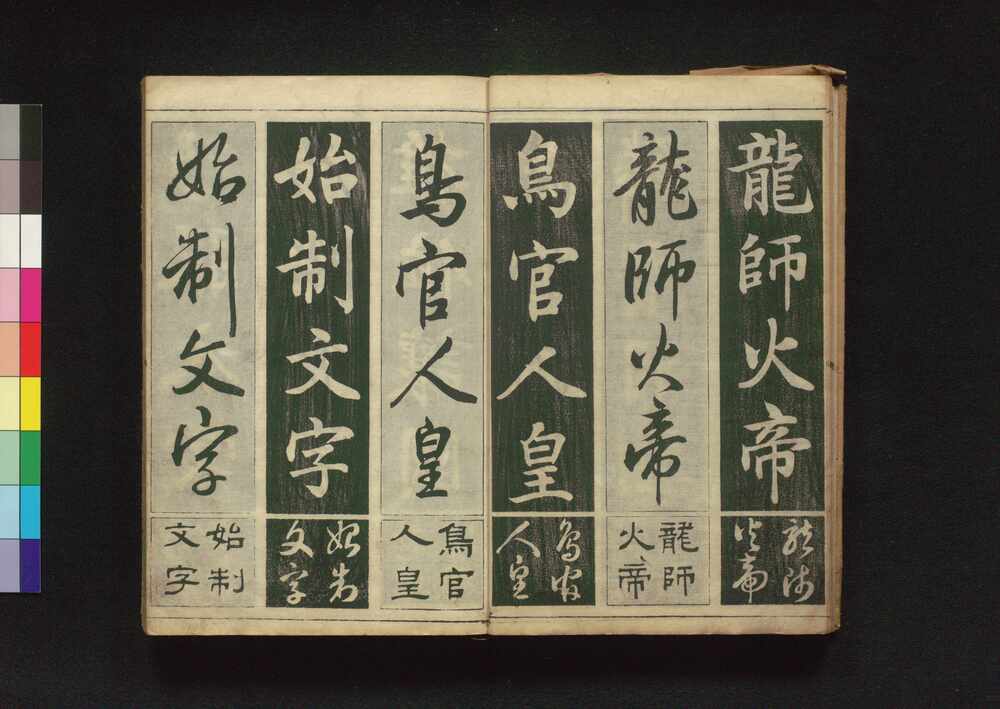 龍師火帝
龍師
火帝
龍師火帝
龍師
火帝
鳥官人皇
鳥官
人皇
鳥官人皇
鳥官
人皇
始制文字
始制
文字
始制文字
始制
文字